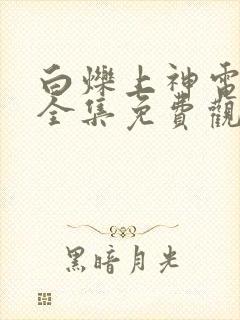 白爍上神電
全集免費觀
黑暗月光